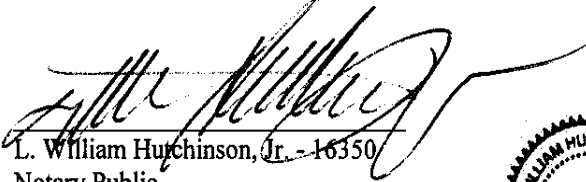 L. William Hutchinson, Jr. - 16350
Notary Public
LIAM HU